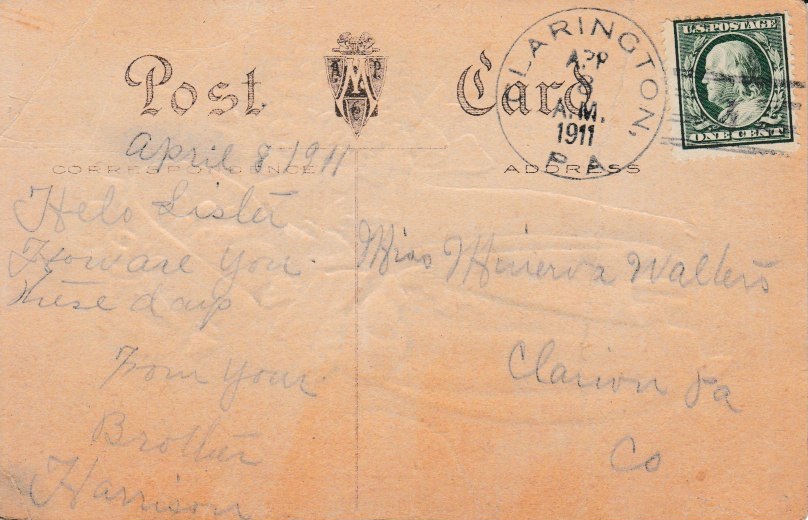 Post Card
A M P
CLARINGTON,
APR
8
A.M.
1911
PA
U.S. POSTAGE
ONE CENT
CORRESPONDENCE
ADDRESS
April 8 1911
Helo Sister
How are you
these days
From your
Brother
Harrison
Miss Minerva Walters
Clarion Pa
Co